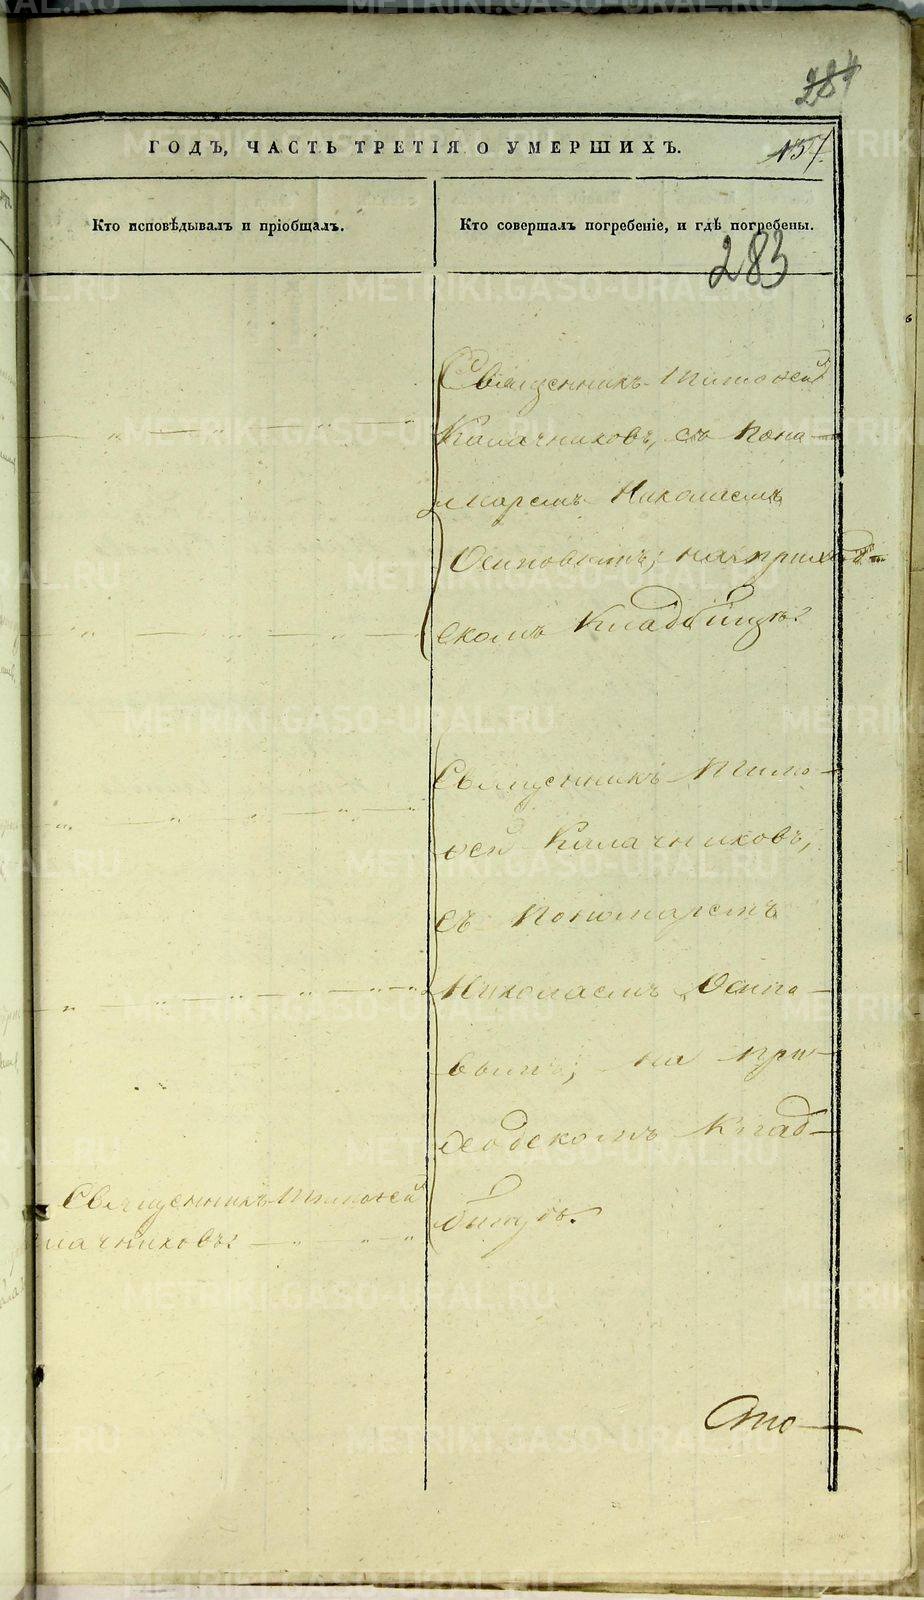 284
ГОДЪ, ЧАСТЬ ТРЕТІЯ О УМЕРШИХЪ.
157.
Кто исповѣдывалъ и пріобщалъ.
Кто совершалъ погребеніе, и гдѣ погребены.
283
Священникъ Тимоѳей
Калачниковъ, съ Пона-
маремъ Николаемъ
Осиповымъ; на приход-
скомъ Кладбищѣ.
Священникъ Тимо-
ѳей Калачниковъ,
съ Пономаремъ
Николаемъ Осипо-
вымъ; на при-
ходскомъ Клад-
бищѣ.
Священникъ Тимоѳей
лачниковъ.
Ито
METRIKI.GASO-URAL.RU